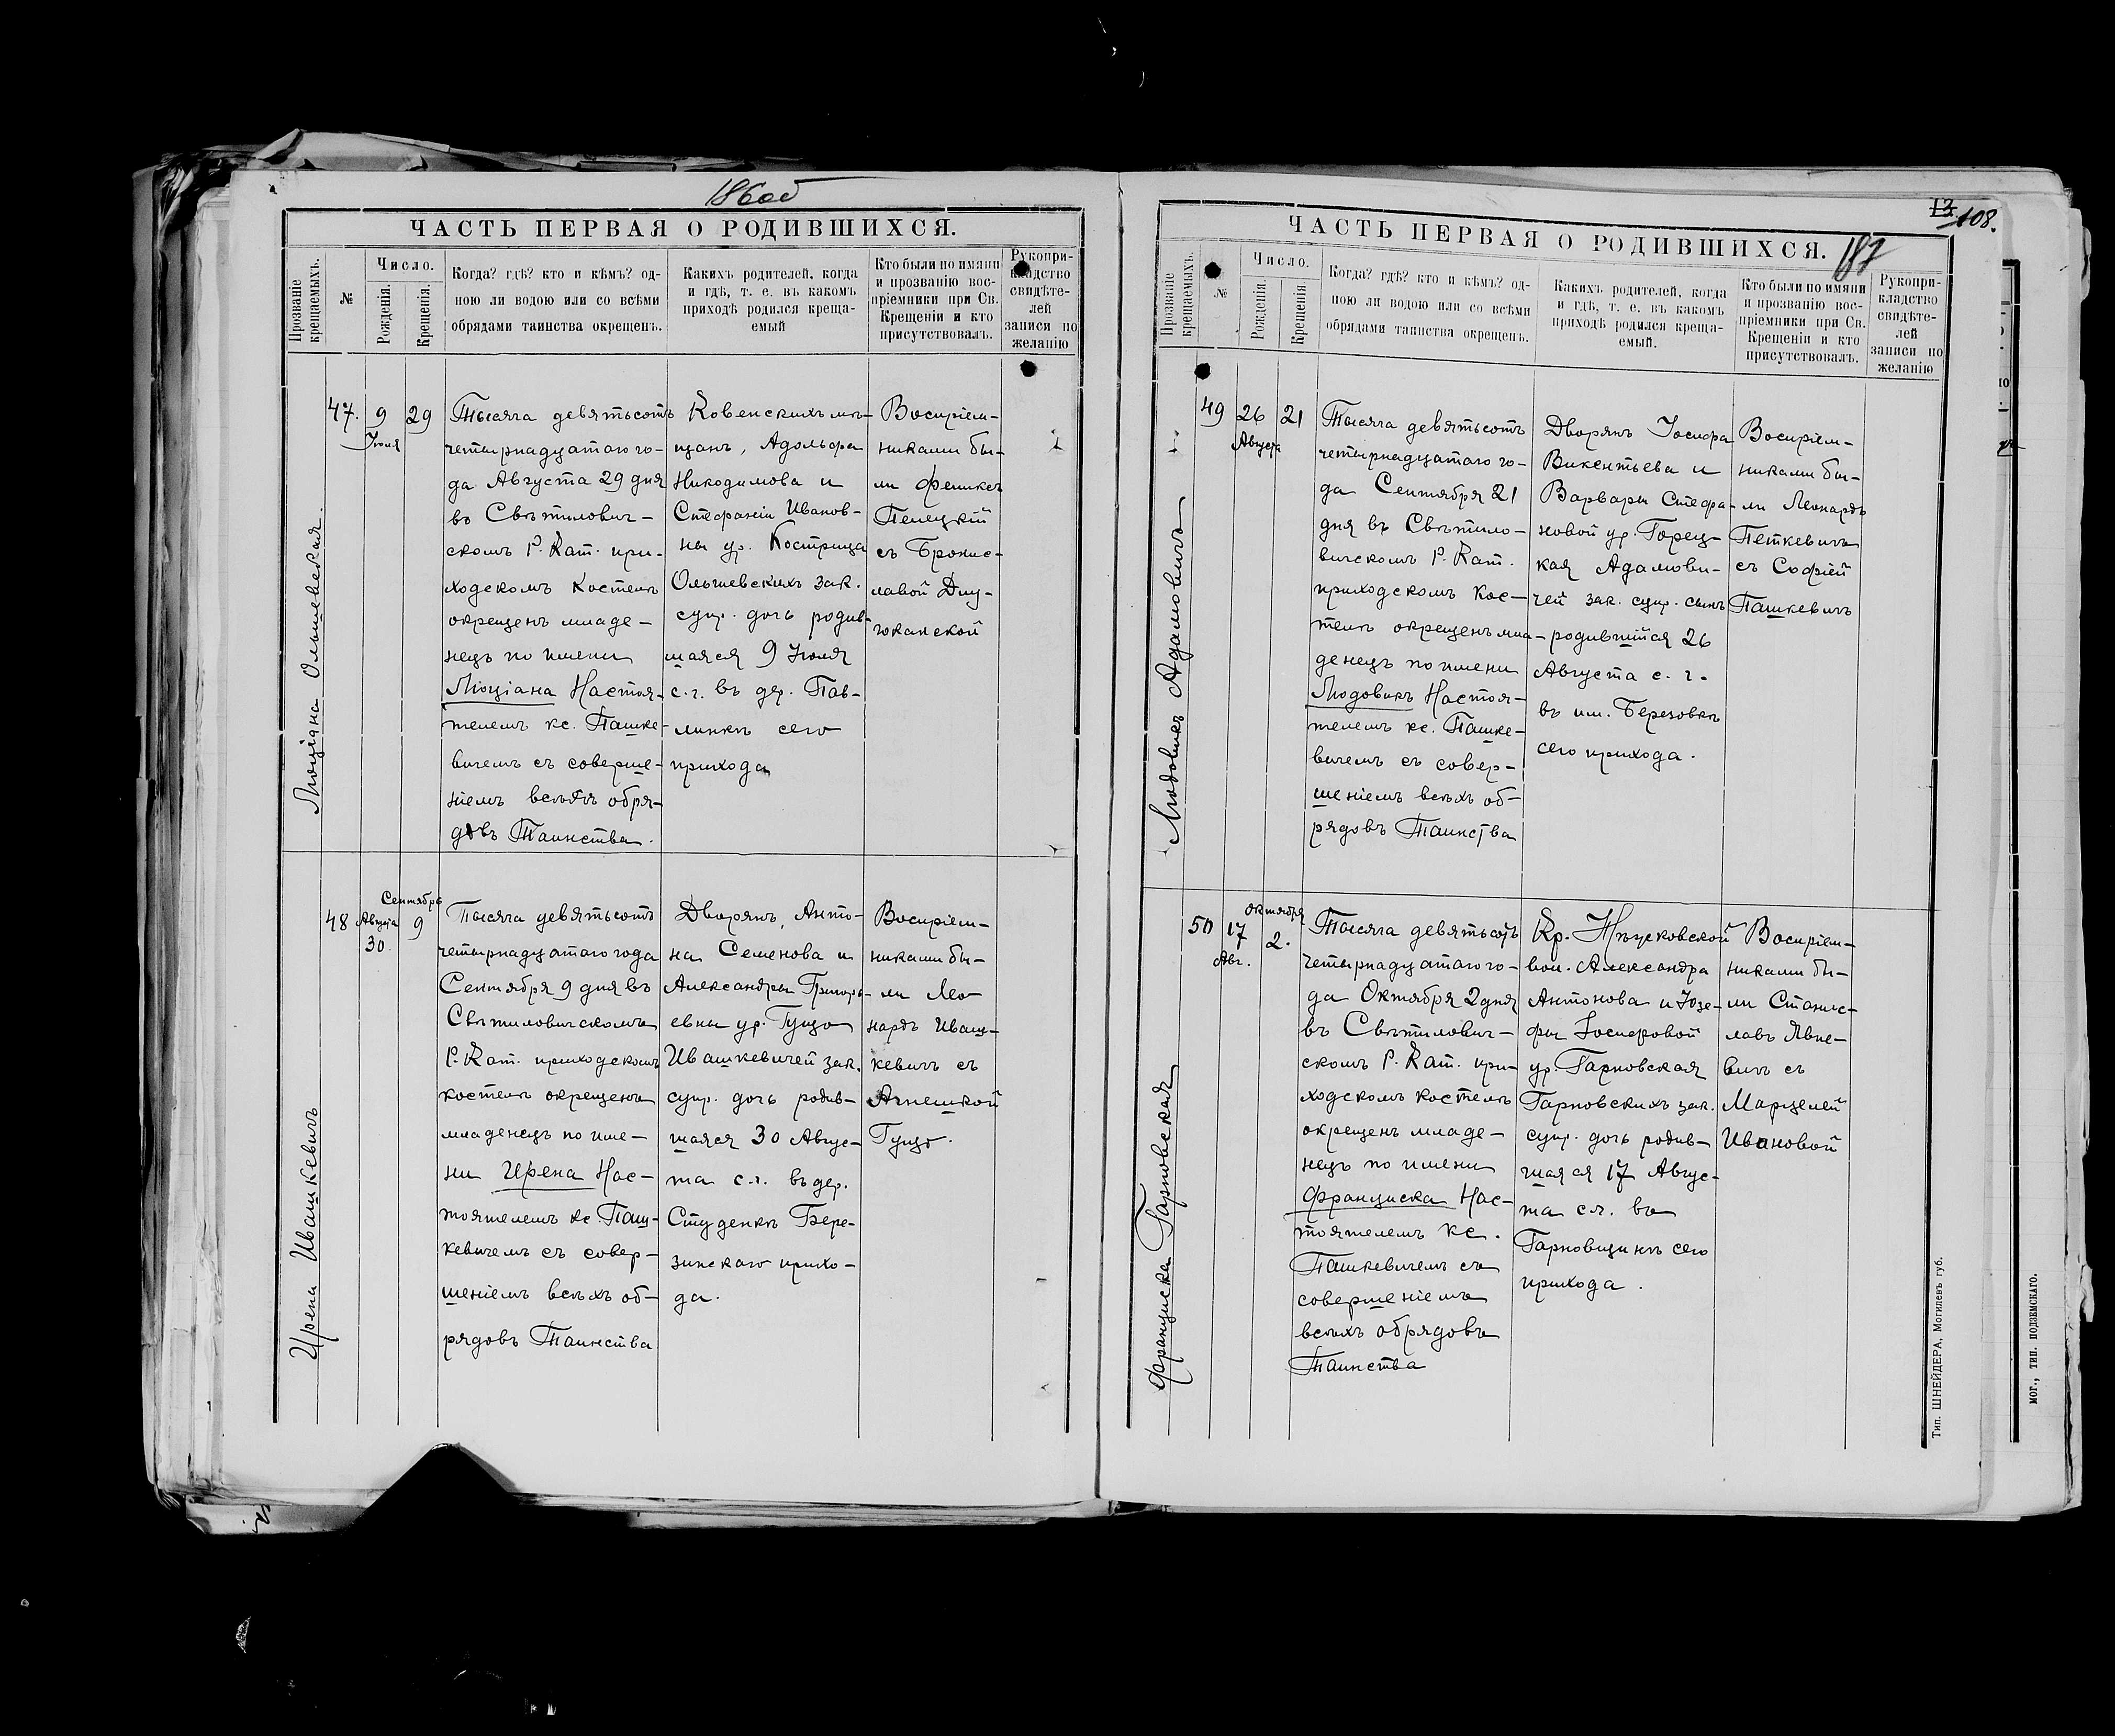 186об
ЧАСТЬ ПЕРВАЯ О РОДИВШИХСЯ.
Прозваніе крещаемыхъ.
№
Число.
Рожденія.
Крещенія.
Когда? гдѣ? кто и кѣмъ? од-
ною ли водою или со всѣми
обрядами таинства окрещенъ.
Какихъ родителей, когда
и гдѣ, т. е. въ какомъ
приходѣ родился креща-
емый
Кто были по имяни
и прозванію вос-
пріемники при Св.
Крещеніи и кто
присутствовалъ.
Рукопри-
кладство
свидѣте-
лей
записи по
желанію
Люціана Ольшевская.
47.
9
Іюля
29
Тысяча девятьсотъ
четырнадцатаго го-
да Августа 29 дня
въ Свѣтилович-
скомъ Р. Кат. при-
ходскомъ Костелѣ
окрещенъ младе-
нецъ по имени
Люціана Настоя-
телемъ кс. Пашке-
вичемъ съ соверше-
ніемъ всѣхъ обря-
довъ Таинства.
Ковенскихъ мѣ-
щанъ, Адольфа
Никодимова и
Стефаніи Иванов-
ны ур. Кострица
Ольшевскихъ зак.
супр. дочь родив-
шаяся 9 Іюля
с.г. въ дер. Пав-
линкѣ сего
прихода
Воспріем-
никами бы-
ли Феликсъ
Пелецкій
съ Бронис-
лавой Длу-
жанской
Ирена Ивашкевичъ
48
Августа
30.
Сентябрь
9
Тысяча девятьсотъ
четырнадцатаго года
Сентября 9 дня въ
Свѣтиловичскомъ
Р. Кат. приходскомъ
костелѣ окрещенъ
младенецъ по име-
ни Ирена Нас-
тоятелемъ кс. Паш-
кевичемъ съ совер-
шеніемъ всѣхъ об-
рядовъ Таинства
Дворянъ, Анто-
на Семенова и
Александры Григорь-
евны ур. Гуцо
Ивашкевичей зак.
супр. дочь родив-
шаяся 30 Авгус-
та с.г. въ дер.
Студенкѣ Бере-
зинскаго прихо-
да.
Воспріем-
никами бы-
ли Лео-
нардъ Иваш-
кевичъ съ
Агнешкой
Гуцо.
13
108.
187
ЧАСТЬ ПЕРВАЯ О РОДИВШИХСЯ.
Прозваніе крещаемыхъ.
№
Число.
Рожденія.
Крещенія.
Когда? гдѣ? кто и кѣмъ? од-
ною ли водою или со всѣми
обрядами таинства окрещенъ.
Какихъ родителей, когда
и гдѣ, т. е. въ какомъ
приходѣ родился креща-
емый.
Кто были по имяни
и прозванію вос-
пріемники при Св.
Крещеніи и кто
присутствовалъ.
Рукопри-
кладство
свидѣте-
лей
записи по
желанію
Людовикъ Адамовичъ
49
26
Августа
21
Тысяча девятьсотъ
четырнадцатаго го-
да Сентября 21
дня въ Свѣтило-
вичскомъ Р. Кат.
приходскомъ Кос-
телѣ окрещенъ мла-
денецъ по имени
Людовикъ Настоя-
телемъ кс. Пашке-
вичемъ съ совер-
шеніемъ всѣхъ об-
рядовъ Таинства
Дворянъ Іосифа
Викентьева и
Варвары Стефа-
новой ур. Горец-
кая Адамови-
чей зак. супр. сынъ
родившійся 26
Августа с. г.
въ им. Березовкѣ
сего прихода.
Воспріем-
никами бы-
ли Леонардъ
Петкевичъ
съ Софіей
Пашкевичъ
Франциска Тарновская
50
17
Авг.
Октября
2.
Тысяча девятьсотъ
четырнадцатаго го-
да Октября 2 дня
въ Свѣтилович-
скомъ Р. Кат. при-
ходскомъ костелѣ
окрещенъ младе-
нецъ по имени
Франциска Нас-
тоятелемъ кс.
Пашкевичемъ съ
совершеніемъ
всѣхъ обрядовъ
Таинства
Кр.
вол. Александра
Антонова и Юзе-
фы Іосифовой
ур. Тарновская
Тарновскихъ зак.
супр. дочь родив-
шаяся 17 Авгус-
та с.г. въ
Тарновщинѣ сего
прихода.
Воспріем-
никами бы-
ли Станис-
лавъ
вичъ съ
Марцелей
Ивановой
Тип. ШНЕЙДЕРА, Могилевъ губ.
МОГ., ТИП. ПОДЗЕМСКАГО.